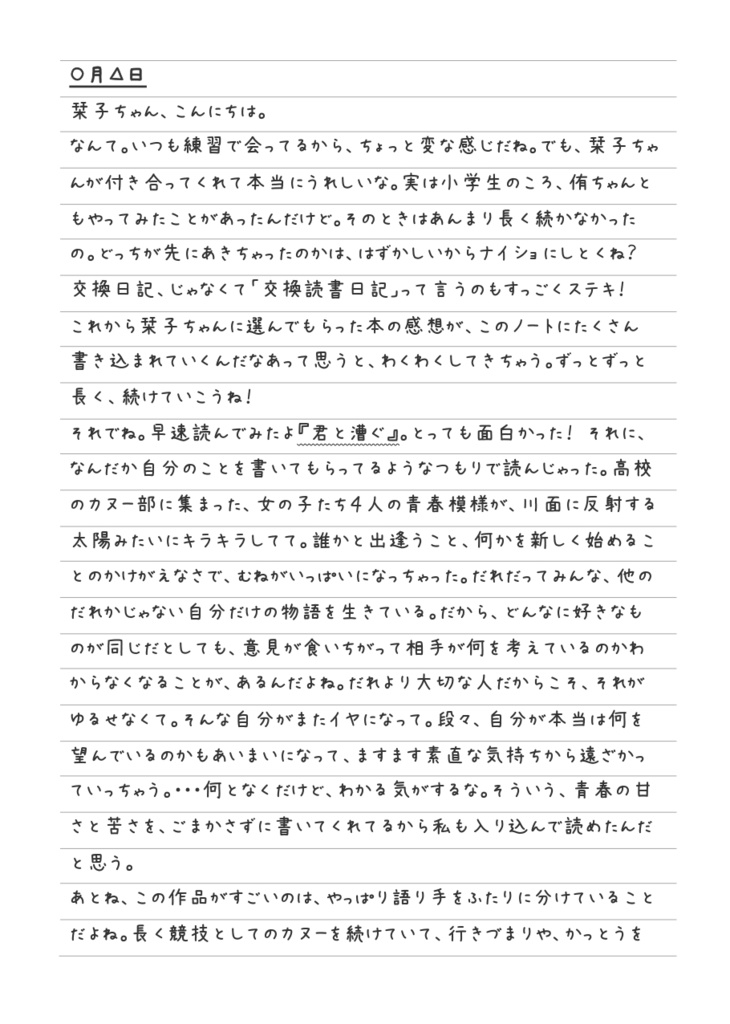 〇月△日
栞子ちゃん、こんにちは。
なんて。いつも練習で会ってるから、ちょっと変な感じだね。でも、栞子ちゃ
んが付き合ってくれて本当にうれしいな。実は小学生のころ、侑ちゃんと
もやってみたことがあったんだけど。そのときはあんまり長く続かなかった
の。どっちが先にあきちゃったのかは、はずかしいからナイショにしとくね?
交換日記、じゃなくて「交換読書日記」って言うのもすっごくステキ!
これから栞子ちゃんに選んでもらった本の感想が、このノートにたくさん
書き込まれていくんだなあって思うと、わくわくしてきちゃう。ずっとずっと
長く、続けていこうね!
それでね。早速読んでみたよ『君と漕ぐ』。とっても面白かった! それに、
なんだか自分のことを書いてもらってるようなつもりで読んじゃった。高校
のカヌー部に集まった、女の子たち4人の青春模様が、川面に反射する
太陽みたいにキラキラしてて。誰かと出逢うこと、何かを新しく始めるこ
とのかけがえなさで、むねがいっぱいになっちゃった。だれだってみんな、他の
だれかじゃない自分だけの物語を生きている。だから、どんなに好きなも
のが同じだとしても、意見が食いちがって相手が何を考えているのかわ
からなくなることが、あるんだよね。だれより大切な人だからこそ、それが
ゆるせなくて。そんな自分がまたイヤになって。段々、自分が本当は何を
望んでいるのかもあいまいになって、ますます素直な気持ちから遠ざかっ
ていっちゃう。・・・何となくだけど、わかる気がするな。そういう、青春の甘
さと苦さを、ごまかさずに書いてくれてるから私も入り込んで読めたんだ
と思う。
あとね、この作品がすごいのは、やっぱり語り手をふたりに分けていること
だよね。長く競技としてのカヌーを続けていて、行きづまりや、かっとうを